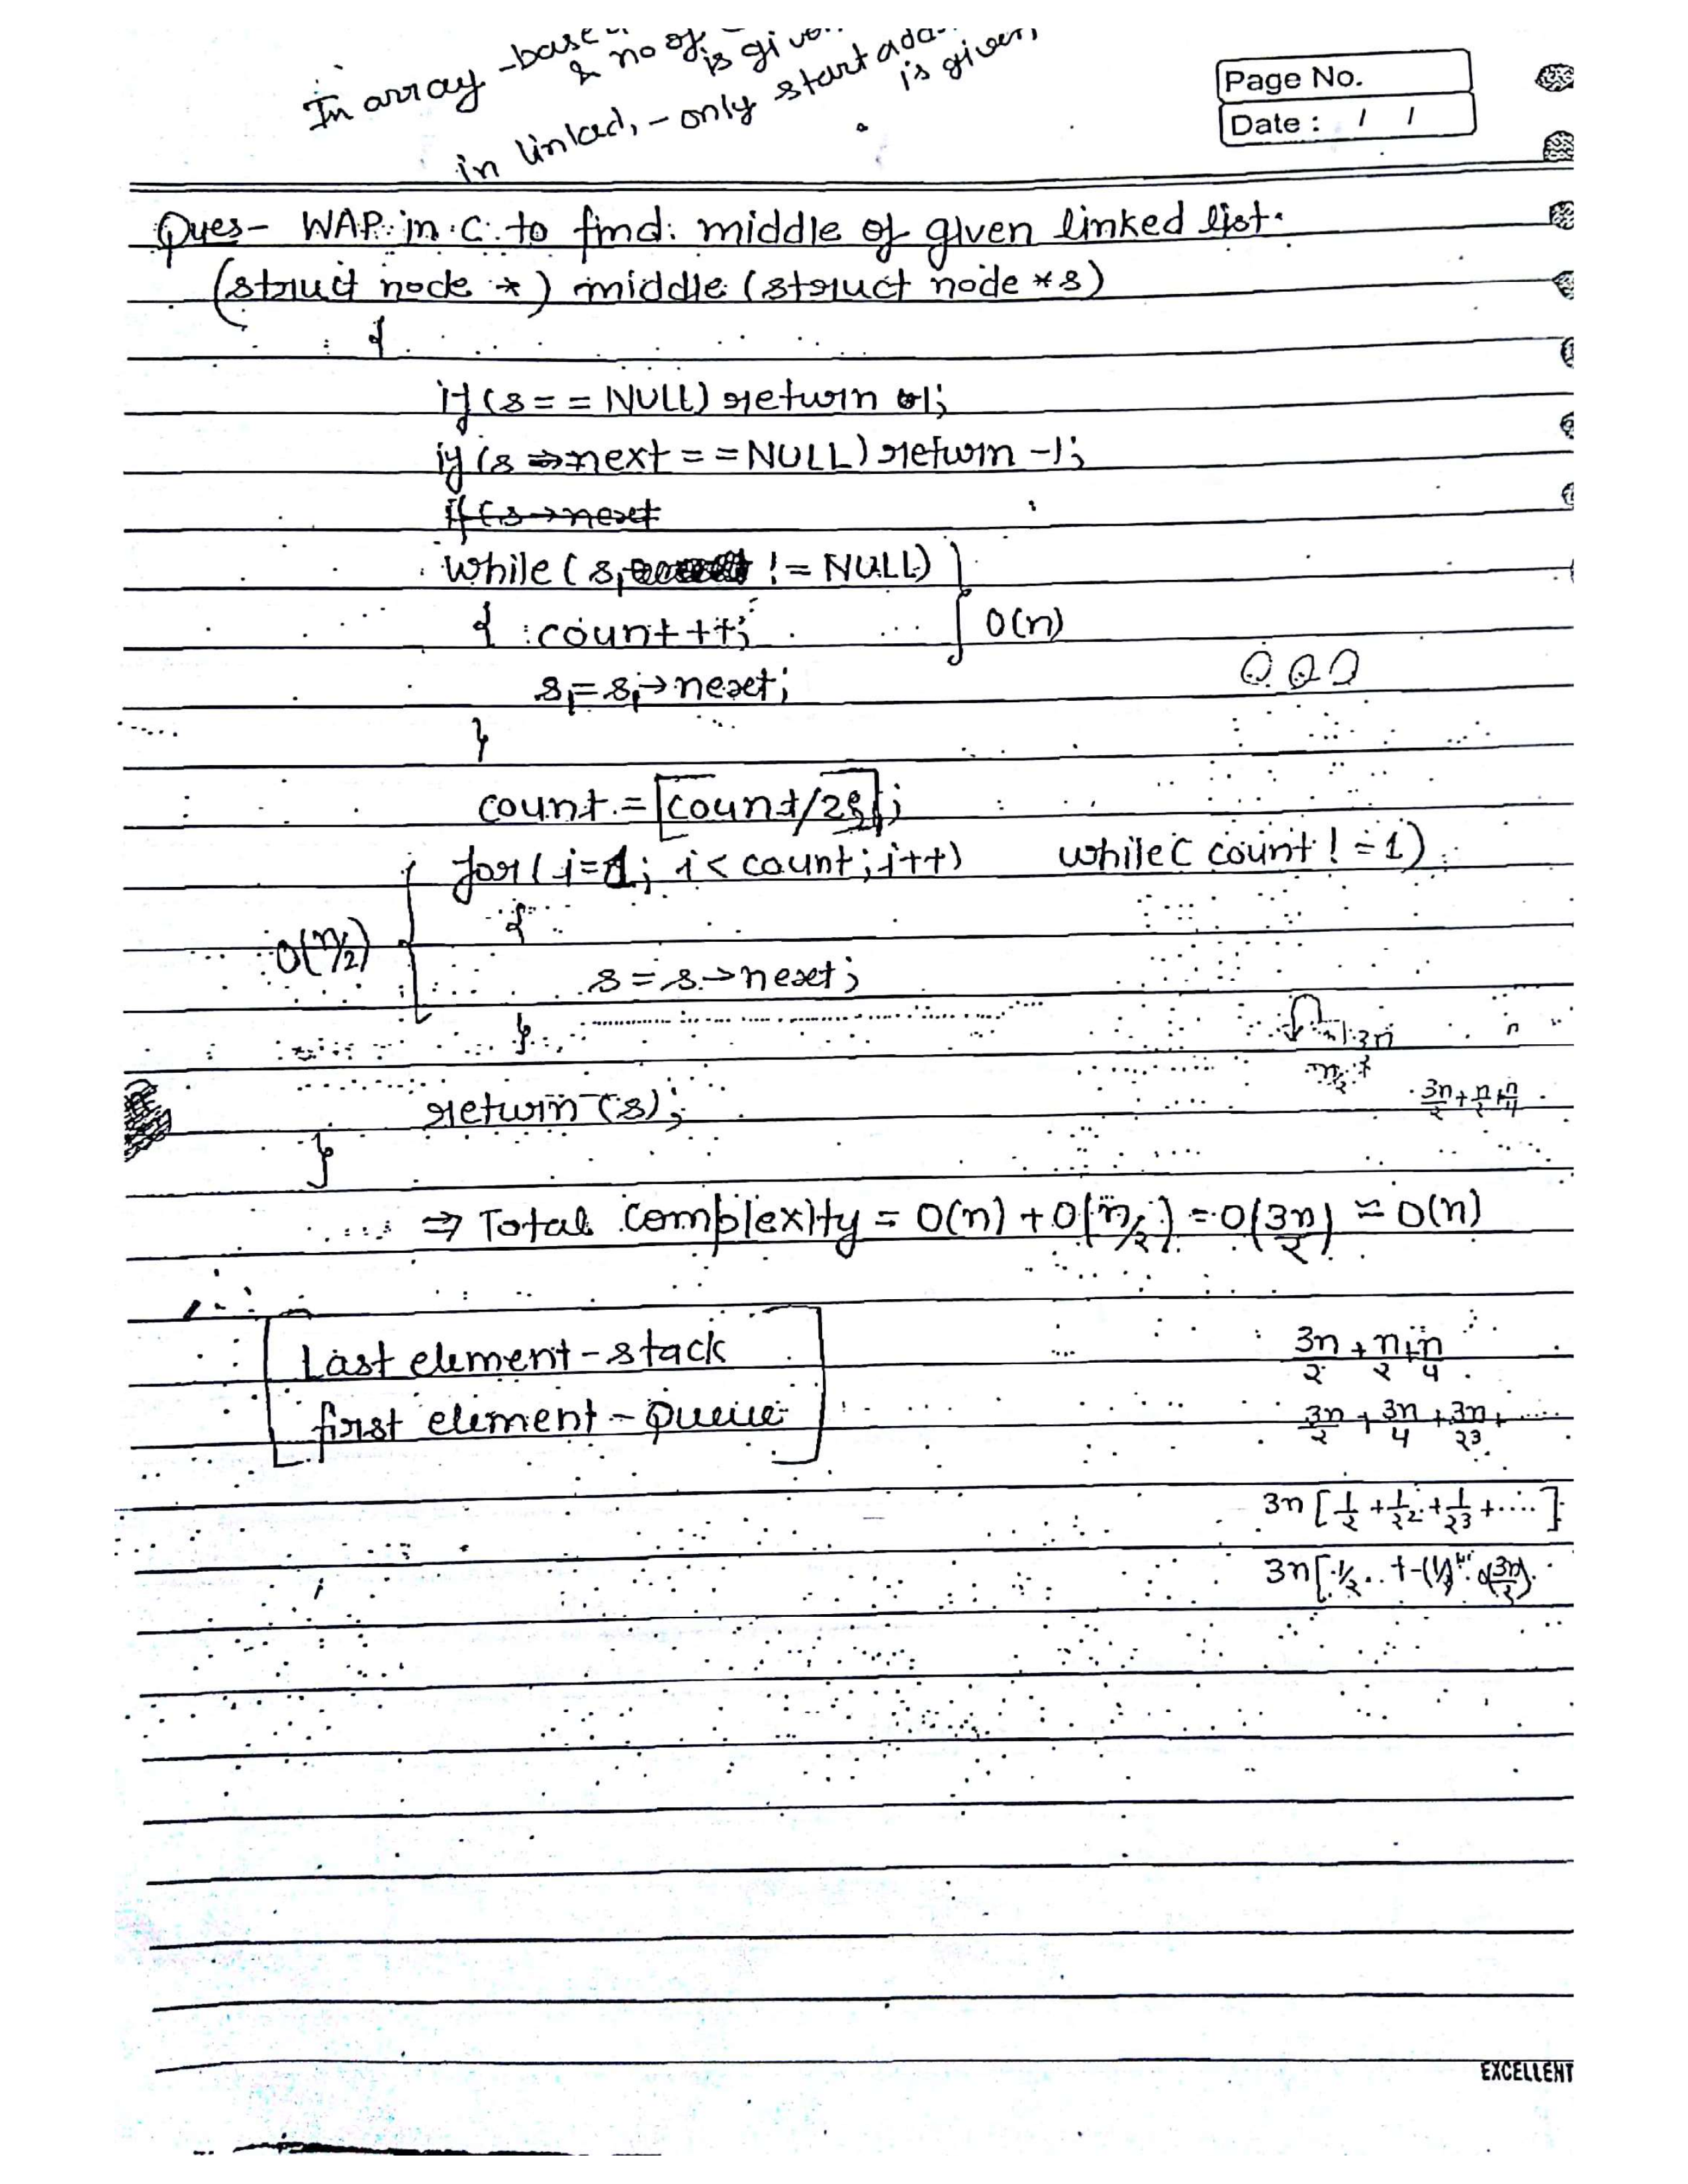 In array - base
& no of
is given
in linked, - only start add
is given
Page No.
Date : / /
Ques- WAP in C to find middle of given linked list.
(struct node *) middle (struct node *s)
{
if (s == NULL) return -1;
if (s → next == NULL) return -1;
if (s→next
while ( s₁ != NULL)
{ count++; O(n)
s₁ = s₁→next;
}
count = ⌈count/2⌉;
for ( i=1; i < count; i++) while( count != 1)
{
O(n/2)
s = s→next;
}
3n/2 + n/2 + n/4
return (s);
}
⇒ Total complexity = O(n) + O(n/2) = O(3n/2) ≈ O(n)
Last element - stack
first element - Queue
3n/2 + n/2 + n/4
3n/2 + 3n/4 + 3n/2³ + ....
3n [ 1/2 + 1/2² + 1/2³ + .... ]
3n [ 1/2 ..
EXCELLENT